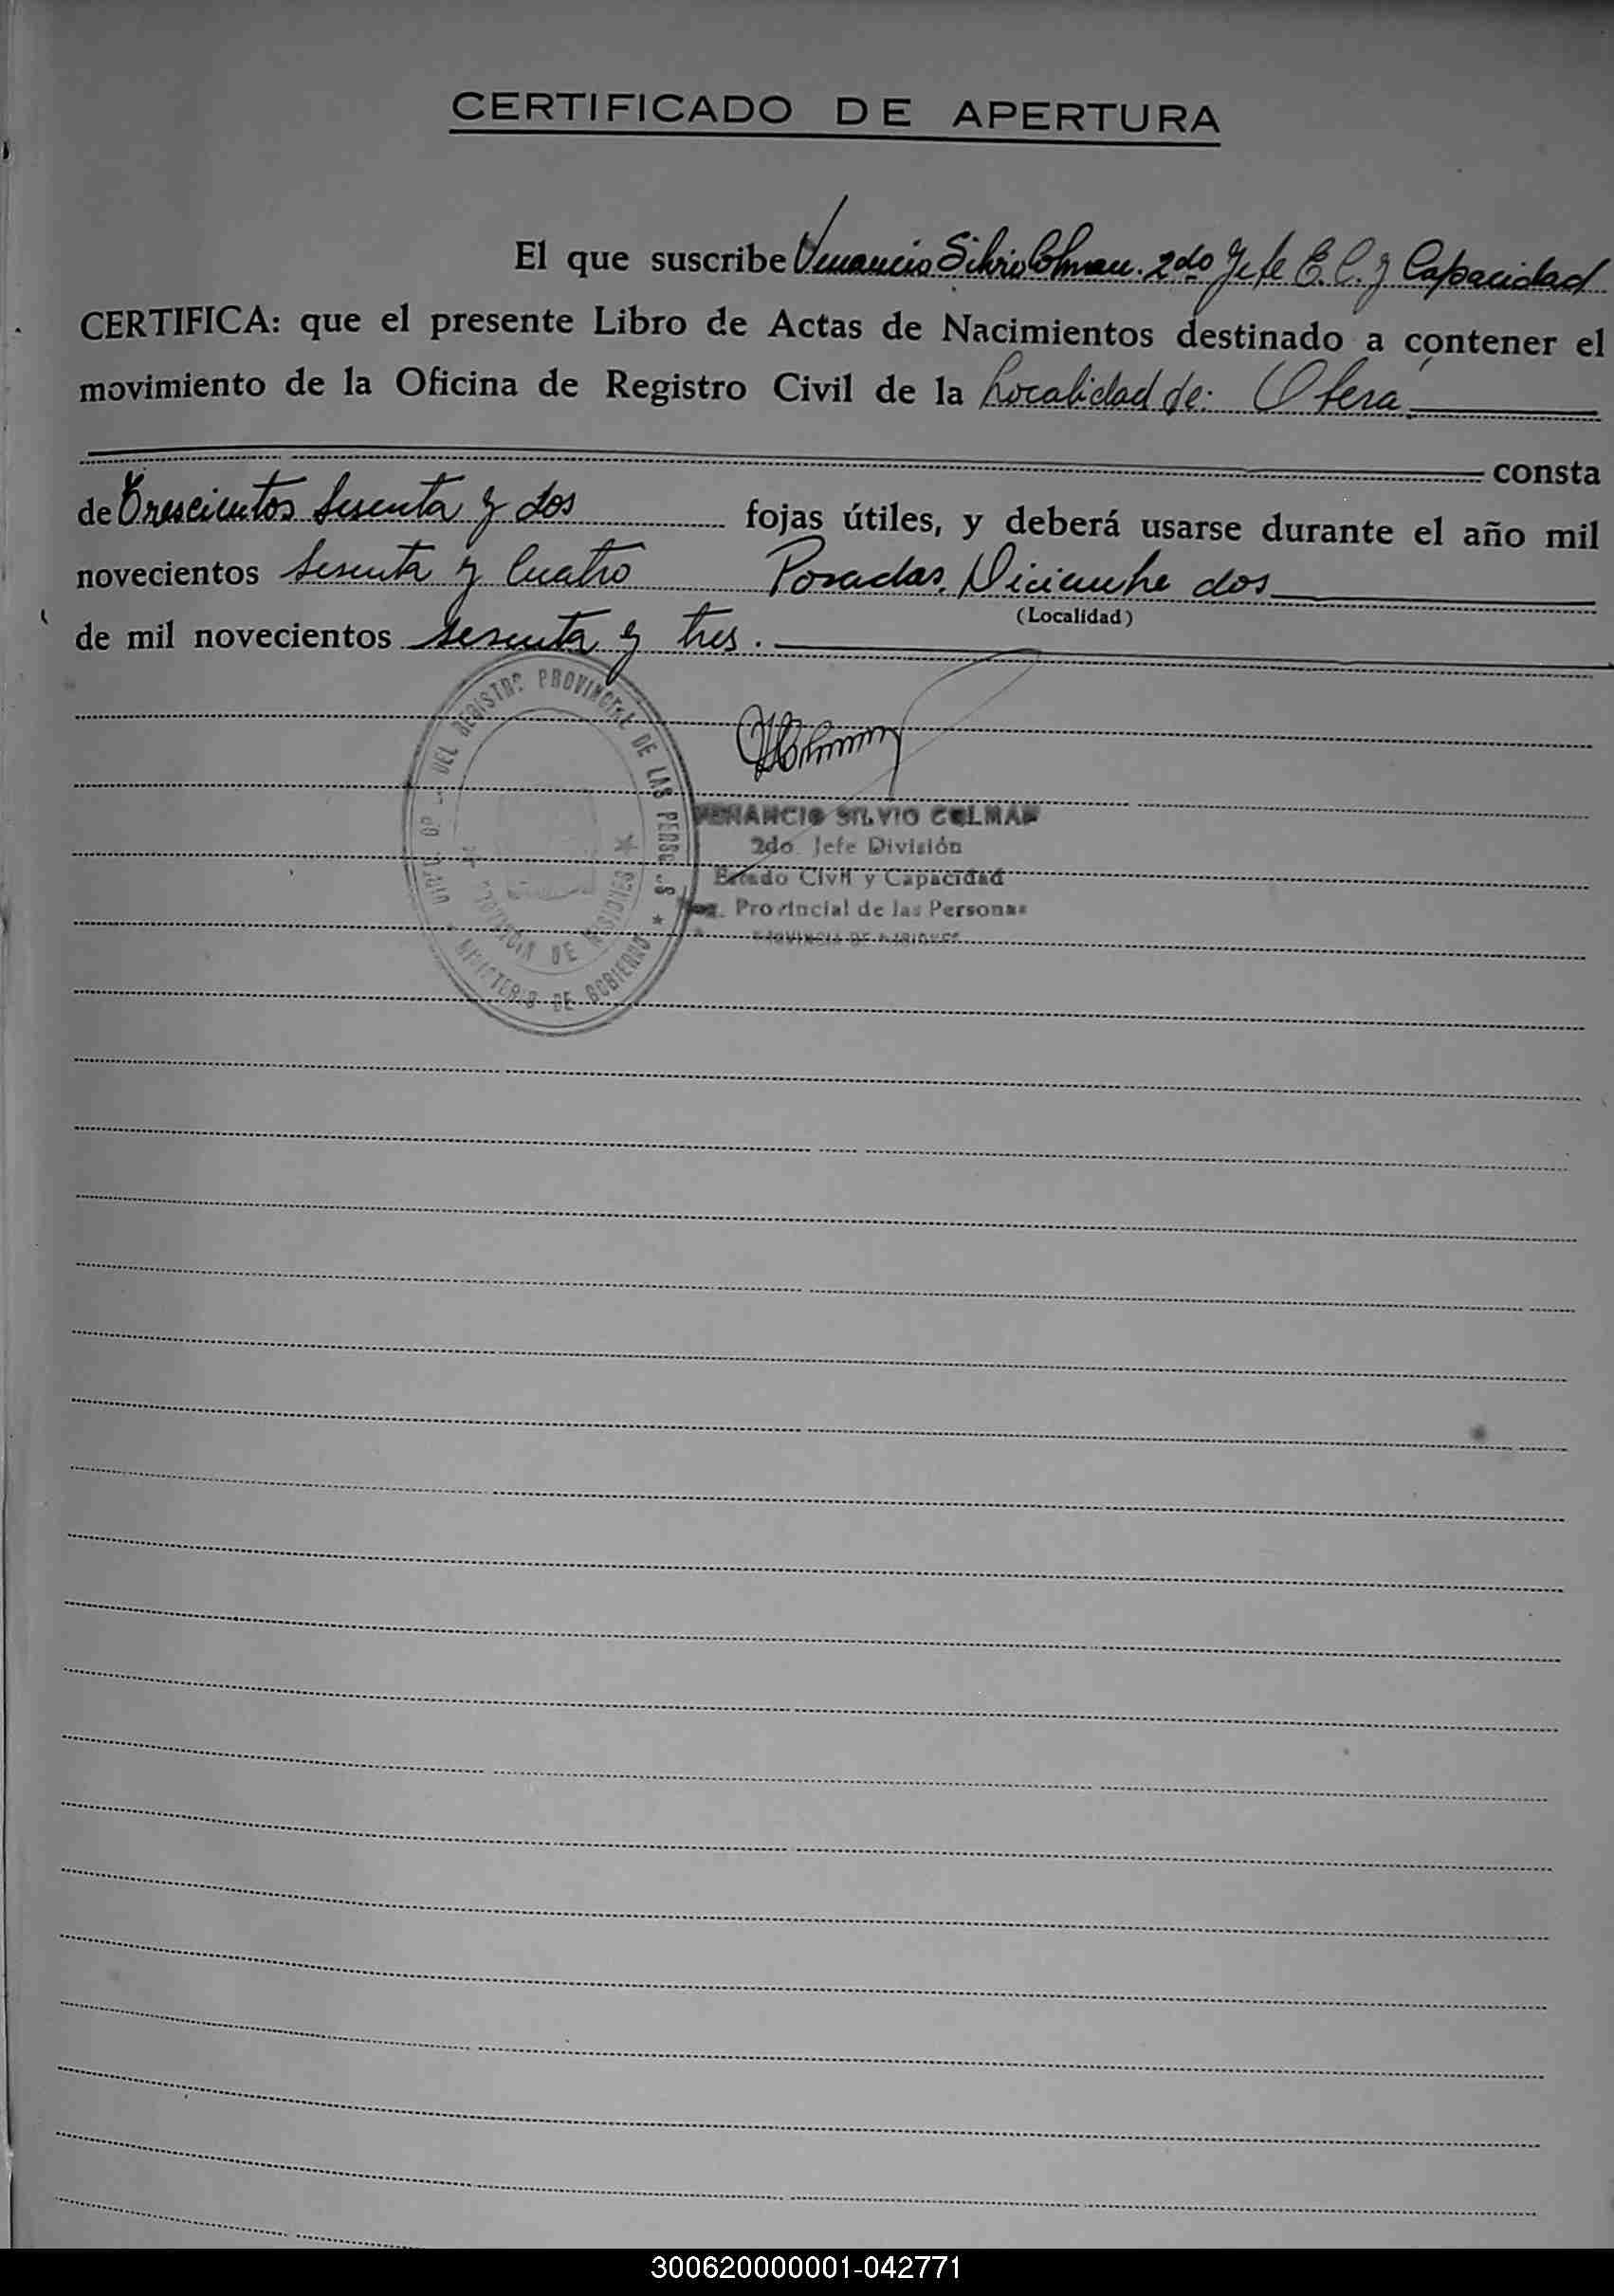 CERTIFICADO DE APERTURA
El que suscribe Venancio Silvio Colman. 2do Jefe E.C. y Capacidad
CERTIFICA: que el presente Libro de Actas de Nacimientos destinado a contener el
movimiento de la Oficina de Registro Civil de la Localidad de: Obera
consta
de Trescientos Sesenta y dos fojas útiles, y deberá usarse durante el año mil
novecientos Sesenta y Cuatro Posadas, Diciembre dos
(Localidad)
de mil novecientos sesenta y tres.
DEL REGISTRO PROVINCIAL DE LAS PERSONAS
PROVINCIA DE MISIONES
MINISTERIO DE GOBIERNO
VENANCIO SILVIO COLMAN
2do. Jefe División
Estado Civil y Capacidad
Reg. Provincial de las Personas
PROVINCIA DE MISIONES
300620000001-042771